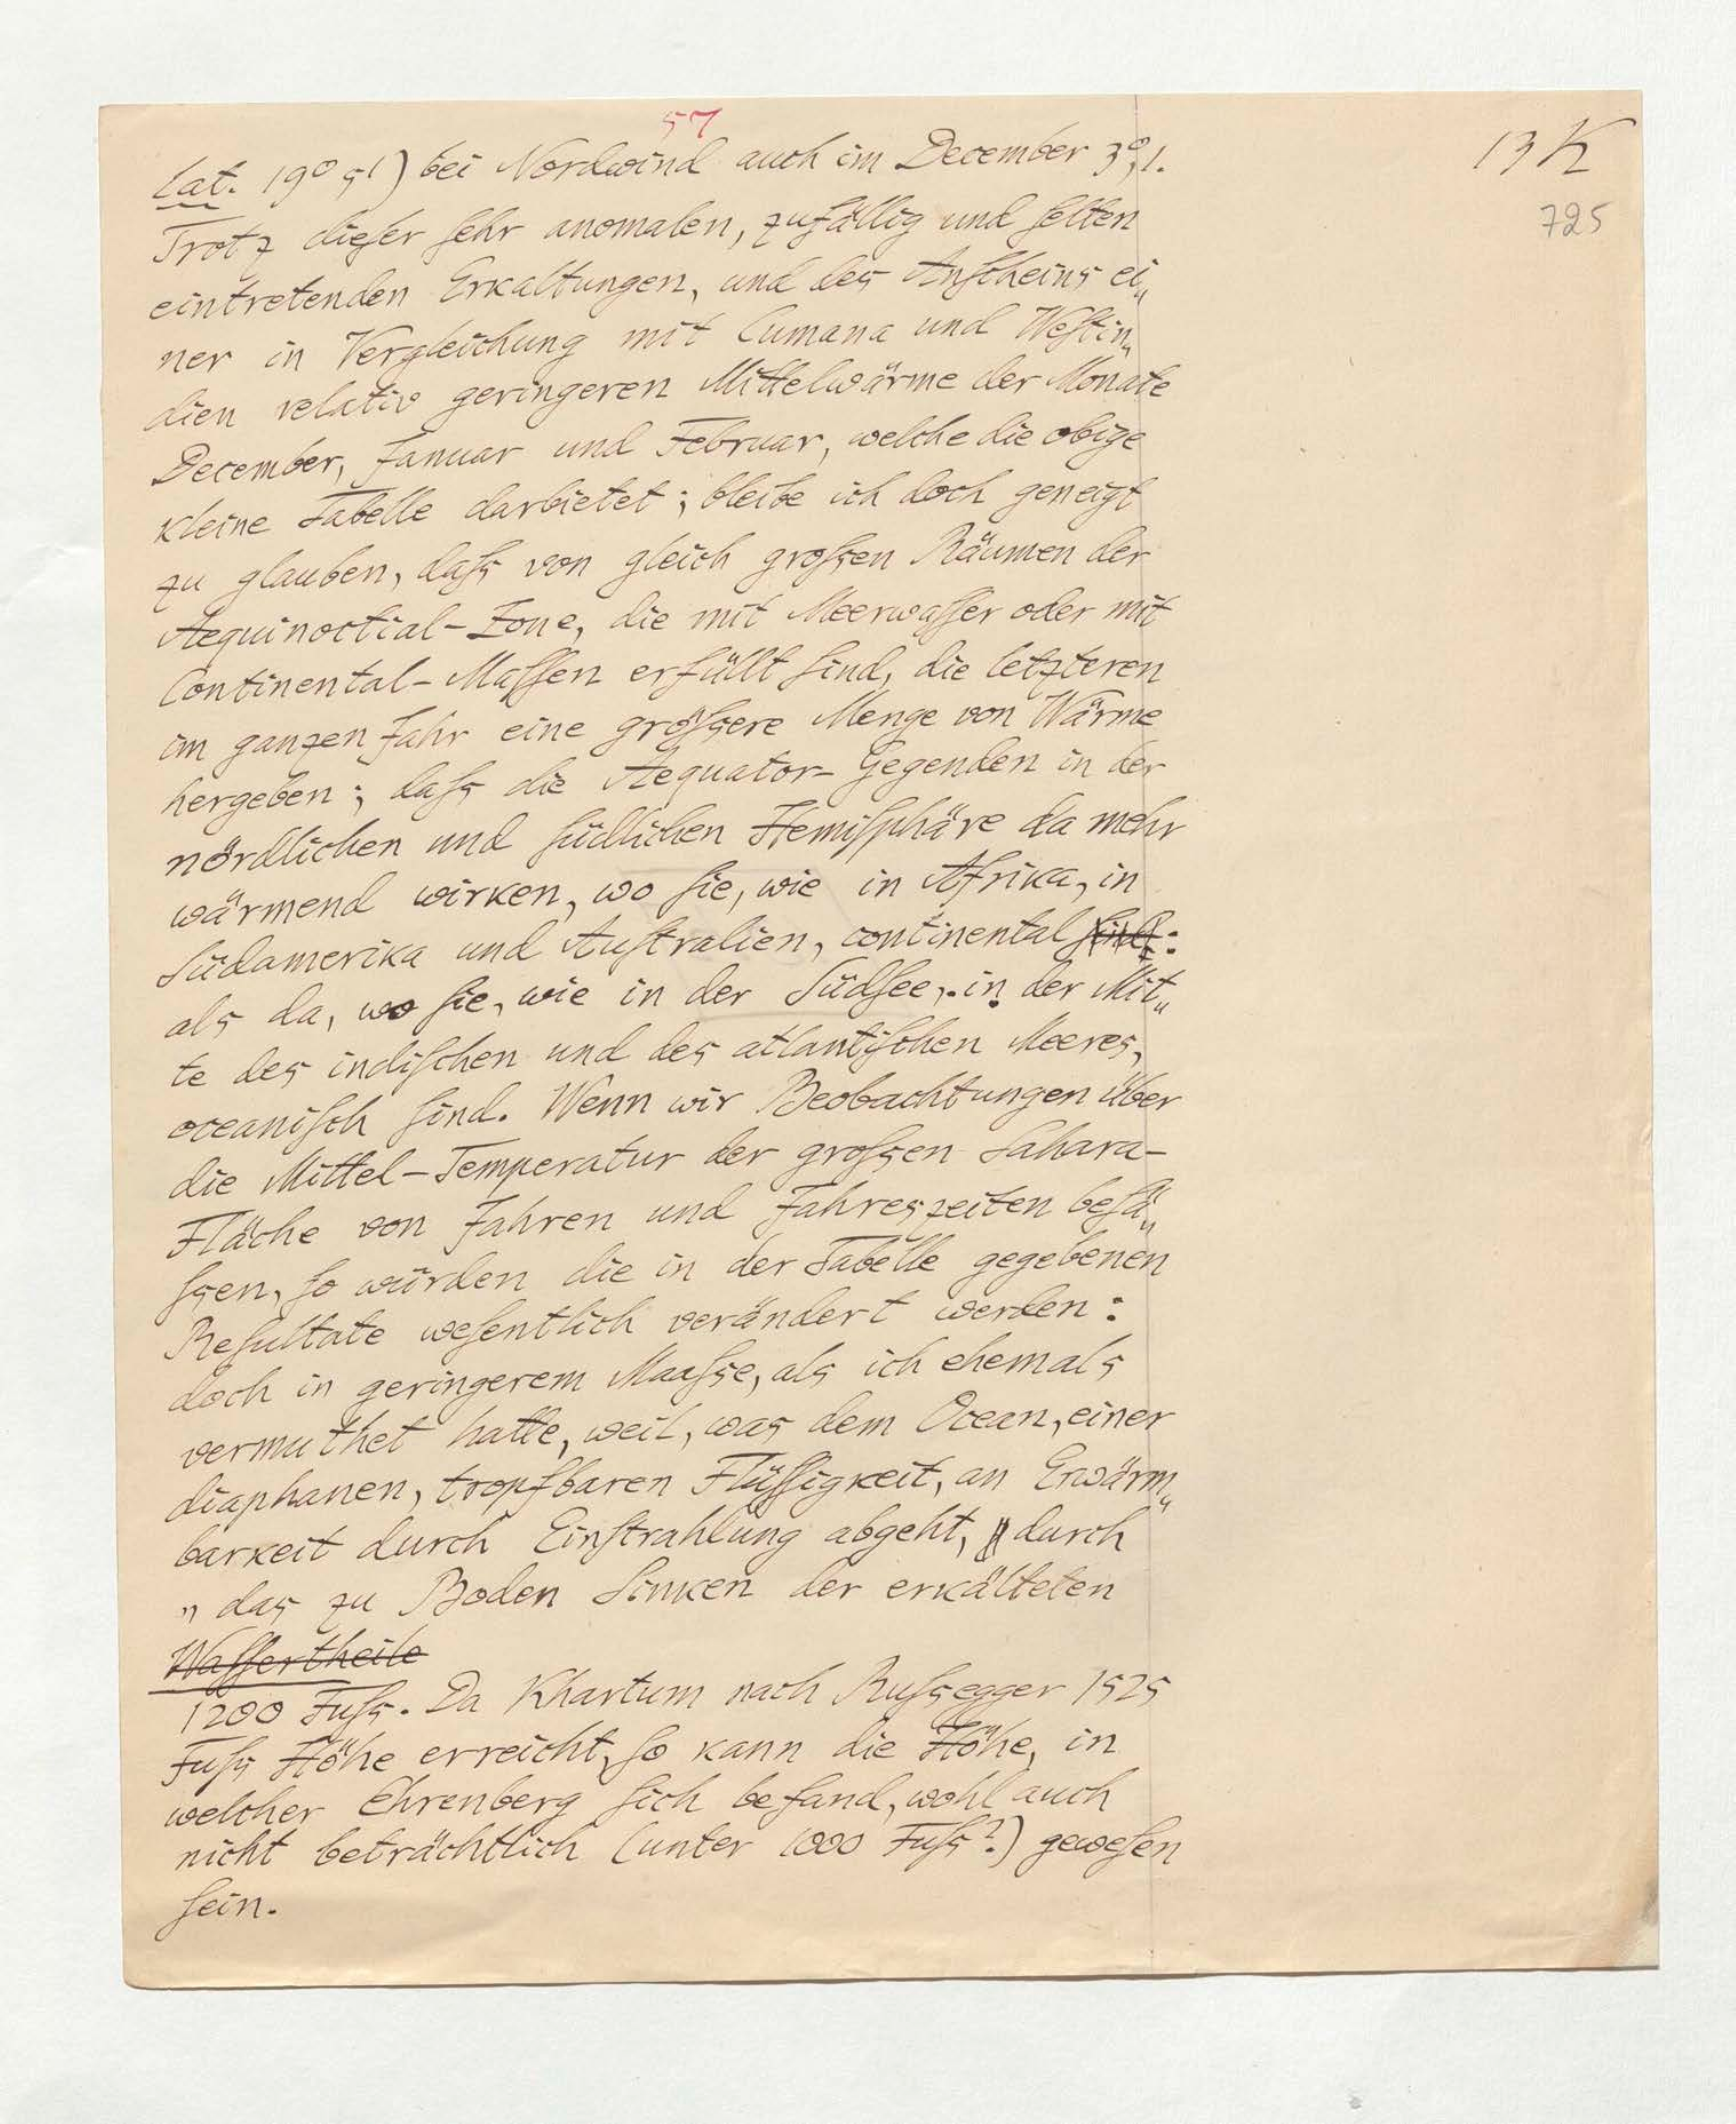 57
13 K
725
Lat. 19° 5') bei Nordwind auch im December 3°,1.
Trotz dieſer ſehr anomalen, zufällig und ſelten
eintretenden Erkaltungen, und des Anſcheins ei„
ner in Vergleichung mit Cumana und Weſtin„
dien relativ geringeren Mittelwärme der Monate
December, Januar und Februar, welche die obige
kleine Tabelle darbietet; bleibe ich doch geneigt
zu glauben, daſs von gleich groſsen Räumen der
Aequinoctial-Zone, die mit Meerwaſſer oder mit
Continental-Maſſen erfüllt ſind, die letzteren
im ganzen Jahr eine gröſsere Menge von Wärme
hergeben; daſs die Aequator-Gegenden in der
nördlichen und ſüdlichen Hemiſphäre da mehr
wärmend wirken, wo ſie, wie in Afrika, in
Südamerika und Auſtralien, continental ſind:
als da, wo ſie, wie in der Südſee, in der Mit„
te des indiſchen und des atlantiſchen Meeres,
oceaniſch ſind. Wenn wir Beobachtungen über
die Mittel-Temperatur der groſsen Sahara-
Fläche von Jahren und Jahreszeiten beſä„
ſsen, ſo würden die in der Tabelle gegebenen
Reſultate weſentlich verändert werden:
doch in geringerem Maaſse, als ich ehemals
vermuthet hatte, weil, was dem Ocean, einer
diaphanen, tropfbaren Flüſſigkeit, an Erwärm„
barkeit durch Einſtrahlung abgeht, durch
„ das zu Boden Sinken der erkälteten
Waſſertheile
1200 Fuſs. Da Khartum nach Ruſsegger 1525
Fuſs Höhe erreicht, ſo kann die Höhe, in
welcher Ehrenberg ſich befand, wohl auch
nicht beträchtlich (unter 1000 Fuſs?) geweſen
ſein.